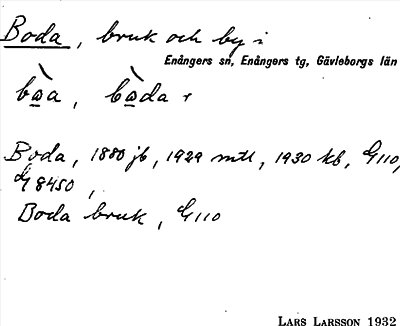 Boda, bruk och by i
Enångers sn, Enångers tg, Gävleborgs län
Boda, 1880 jb, 1929 mtl, 1930 kb, G110,
G 8450,
Boda bruk, G110
LARS LARSSON 1932